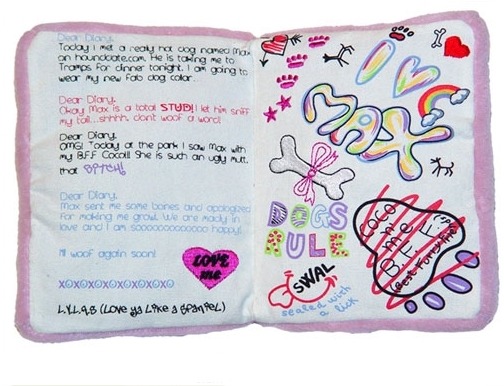 Dear Diary,
Today I met a really hot dog named Max
on hounddate.com. He is taking me to
Tramps for dinner tonight. I am going to
wear my new Fab dog collar...
Dear Diary,
Okay Max is a total STUD! I let him sniff
my tail...shhhh, dont woof a word!
Dear Diary,
OMG! Today at the park I saw Max with
my B.F.F Coco!! She is such an ugly mutt,
that B*TCH!
Dear Diary,
Max sent me some bones and apologized
for making me growl. We are madly in
love and I am soooooooooooooo happy!
I'll woof again soon!
XOXOXOXOXOXOXO
L.Y.L.A.S (Love ya Like a Spaniel)
LOVE
me
I
MAX
DOGS
RULE
SWAL
sealed with
a lick
COCO
n
me
B.F.F.'s
(Best Furry Friends)